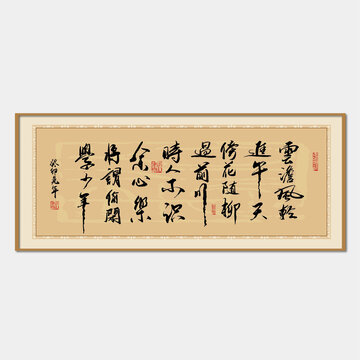 雲澹風輕
進午天
傍花随柳
過前川
時人不识
余心樂
將謂偷閑
學少年
癸卯年